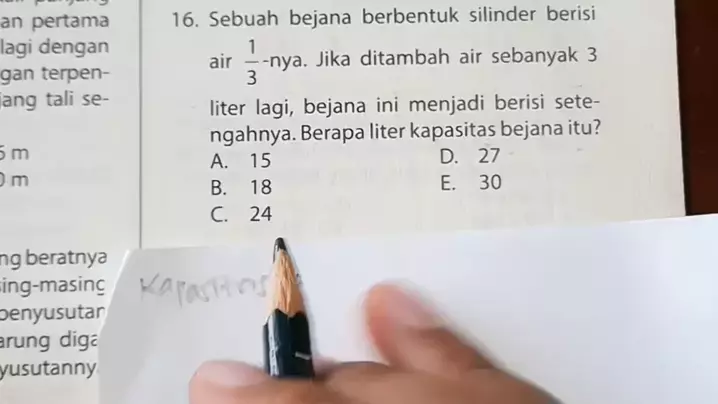 an pertama
lagi dengan
gan terpen-
jang tali se-
m
m
ng beratnya
ing-masing
penyusutan
arung diga
yusutanny
16. Sebuah bejana berbentuk silinder berisi
air 1/3-nya. Jika ditambah air sebanyak 3
liter lagi, bejana ini menjadi berisi sete-
ngahnya. Berapa liter kapasitas bejana itu?
A. 15
B. 18
C. 24
D. 27
E. 30
Kapasitas